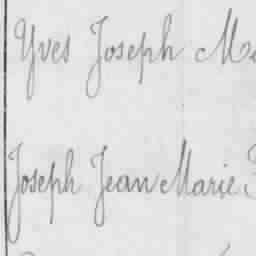 Yves Joseph
Joseph Jean Marie